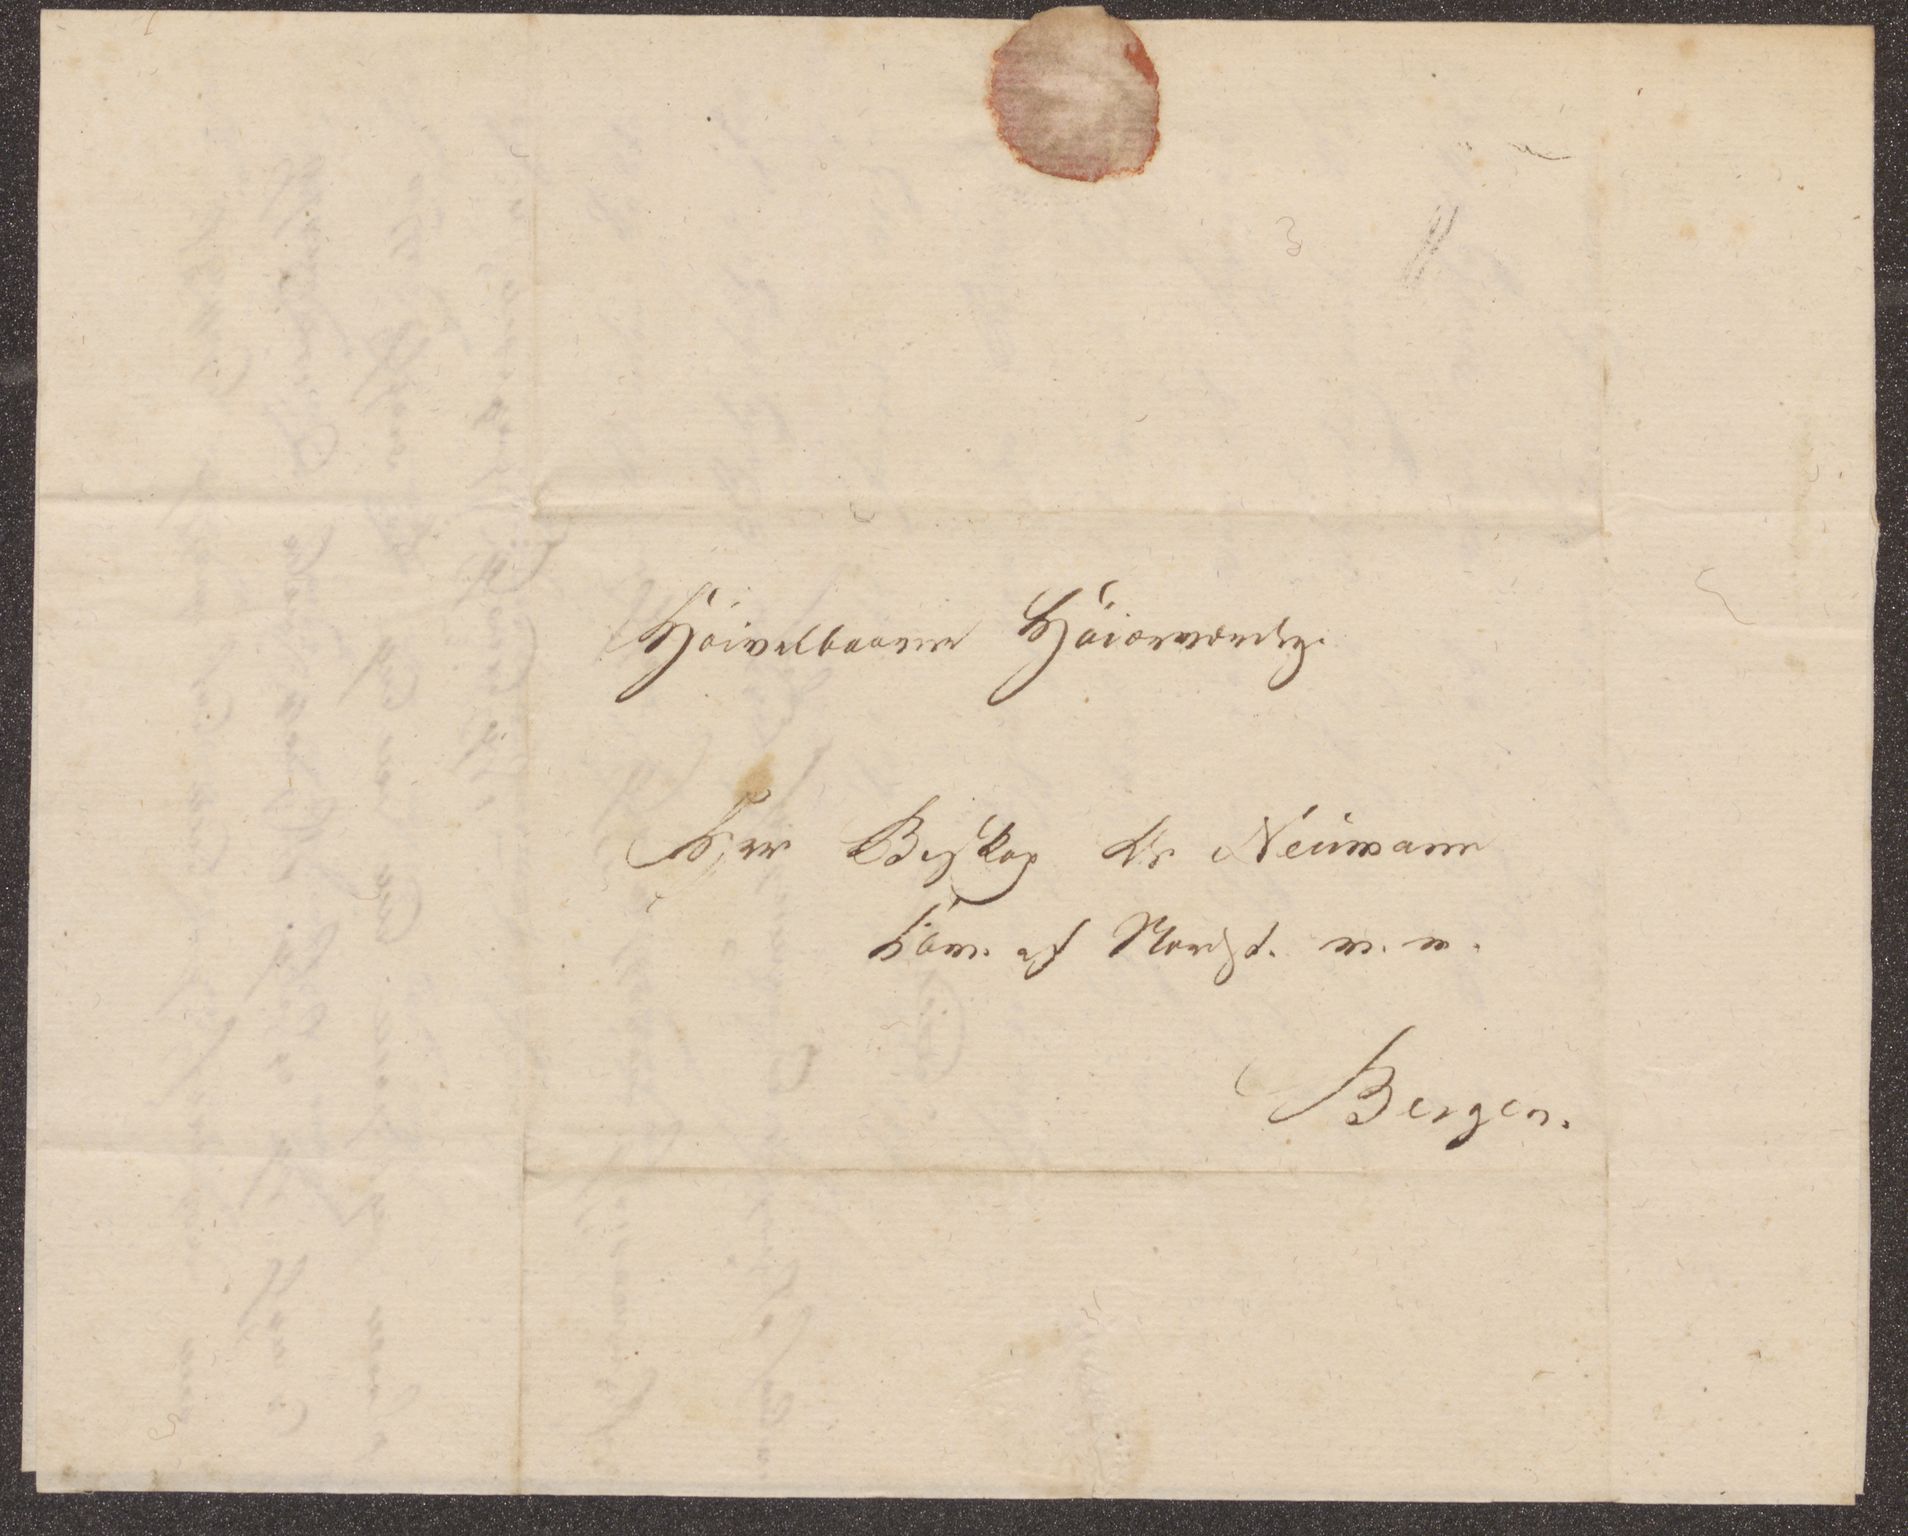 Høivelbaarne Høiærværdig
Herr Biskop Dr Neumann
Com. af Nordst. m. m.
Bergen.